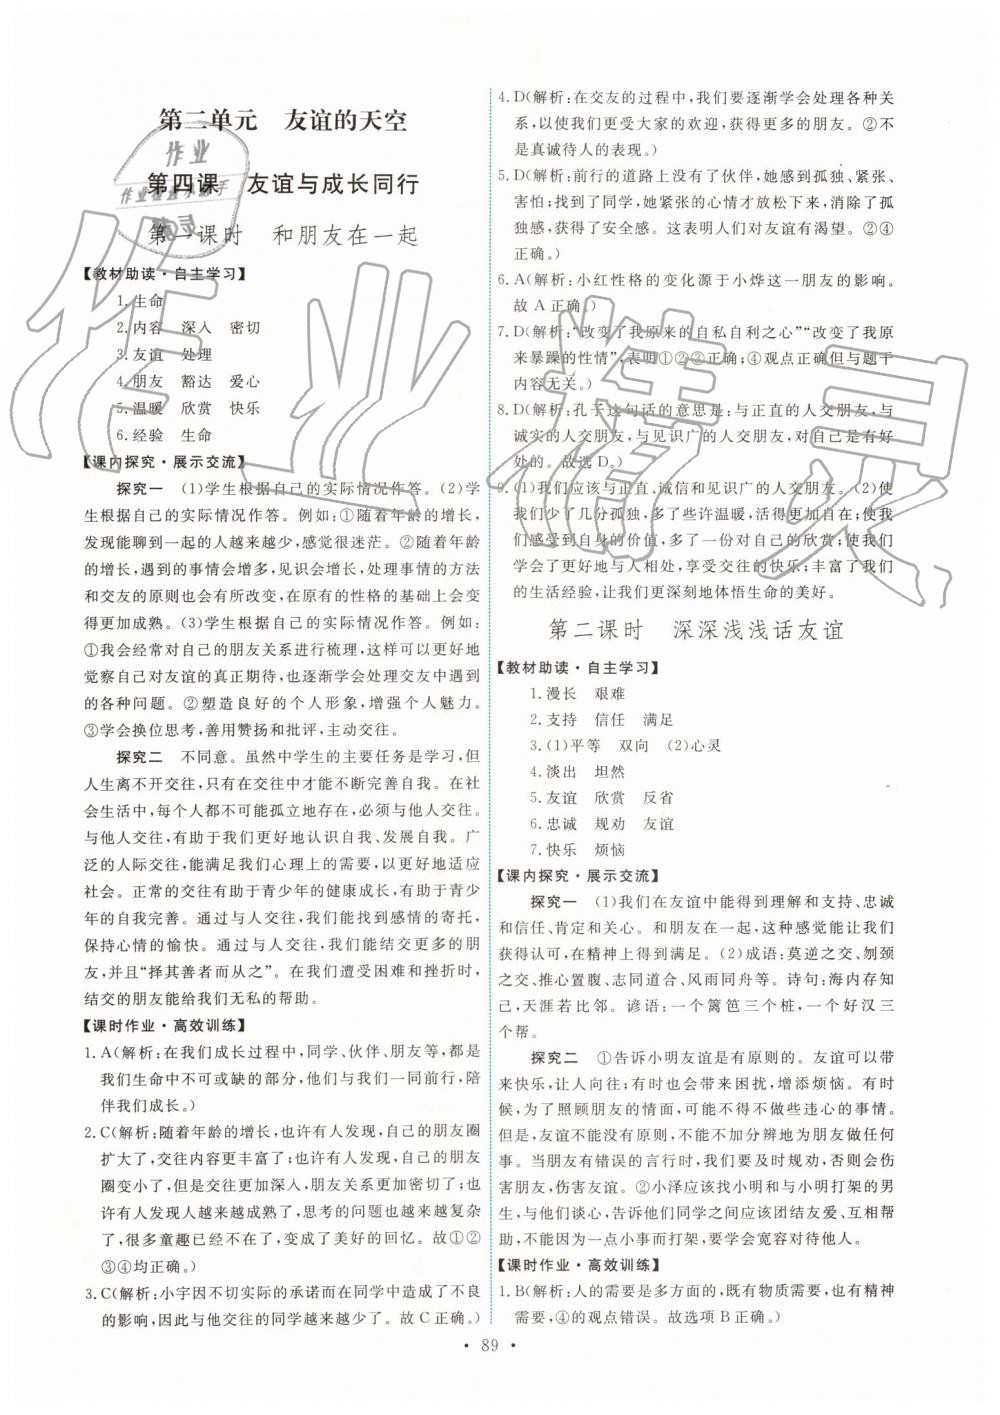 第二单元　友谊的天空
第四课　友谊与成长同行
第一课时　和朋友在一起
【教材助读·自主学习】
1.生命
2.内容　深入　密切
3.友谊　处理
4.朋友　豁达　爱心
5.温暖　欣赏　快乐
6.经验　生命
【课内探究·展示交流】
探究一　(1)学生根据自己的实际情况作答。(2)学
生根据自己的实际情况作答。例如:①随着年龄的增长,
发现能聊到一起的人越来越少,感觉很迷茫。②随着年龄
的增长,遇到的事情会增多,见识会增长,处理事情的方法
和交友的原则也会有所改变,在原有的性格的基础上会变
得更加成熟。(3)学生根据自己的实际情况作答。例如:
①我会经常对自己的朋友关系进行梳理,这样可以更好地
觉察自己对友谊的真正期待,也逐渐学会处理交友中遇到
的各种问题。②塑造良好的个人形象,增强个人魅力。
③学会换位思考,善用赞扬和批评,主动交往。
探究二　不同意。虽然中学生的主要任务是学习,但
人生离不开交往,只有在交往中才能不断完善自我。在社
会生活中,每个人都不可能孤立地存在,必须与他人交往。
与他人交往,有助于我们更好地认识自我、发展自我。广
泛的人际交往,能满足我们心理上的需要,以更好地适应
社会。正常的交往有助于青少年的健康成长,有助于青少
年的自我完善。通过与人交往,我们能找到感情的寄托,
保持心情的愉快。通过交往,我们能结交更多的朋
友,并且“择其善者而从之”。在我们遭受困难和挫折时,
结交的朋友能给我们无私的帮助。
【课时作业·高效训练】
1.A(解析:在我们成长过程中,同学、伙伴、朋友等,都是
我们生命中不可或缺的部分,他们与我们一同前行,陪
伴我们成长。)
2.C(解析:随着年龄的增长,也许有人发现,自己的朋友圈
扩大了,交往内容更丰富了;也许有人发现,自己的朋友
圈变小了,但是交往更加深入,朋友关系更加密切了。也
许有人发现人越来越成熟了,思考的问题也越来越复杂
了,很多童趣已经不在了,变成了美好的回忆。故①②
③④均正确。)
3.C(解析:小宇因不切实际的承诺而在同学中造成了不良
的影响,因此与他交往的同学越来越少了。故C正确。)
4.D(解析:在交友的过程中,我们要逐渐学会处理各种关
系,以使我们更受大家的欢迎,获得更多的朋友。②不
是真诚待人的表现。)
5.D(解析:前行的道路上没有了伙伴,她感到孤独、紧张、
害怕;找到了同学,她紧张的心情才放松下来,消除了孤
独感,获得了安全感。这表明人们对友谊有渴望。②④
正确。)
6.A(解析:小红性格的变化源于小烨这一朋友的影响。
故A正确。)
7.D(解析:“改变了我原来的自私自利之心”“改变了我原
来暴躁的性情”,表明①②③正确;④观点正确但与题干
内容无关。)
8.D(解析:孔子这句话的意思是:与正直的人交朋友,与
诚实的人交朋友,与见识广的人交朋友,对自己是有好
处的。故选D。)
9.(1)我们应该与正直、诚信和见识广的人交朋友。(2)使
我们少了几分孤独,多了些许温暖,活得更加自在;使我
们感受到自身的价值,多了一份对自己的欣赏;使我们
学会了更好地与人相处,享受交往的快乐;丰富了我们
的生活经验,让我们更深刻地体悟生命的美好。
第二课时　深深浅浅话友谊
【教材助读·自主学习】
1.漫长　艰难
2.支持　信任　满足
3.(1)平等　双向　(2)心灵
4.淡出　坦然
5.友谊　欣赏　反省
6.忠诚　规劝　友谊
7.快乐　烦恼
【课内探究·展示交流】
探究一　(1)我们在友谊中能得到理解和支持、忠诚
和信任、肯定和关心。和朋友在一起,这种感觉能让我们
获得认可,在精神上得到满足。(2)成语:莫逆之交、刎颈
之交、推心置腹、志同道合、风雨同舟等。诗句:海内存知
己,天涯若比邻。谚语:一个篱笆三个桩,一个好汉三
个帮。
探究二　①告诉小明友谊是有原则的。友谊可以带
来快乐,让人向往;有时也会带来烦恼,增添烦恼。有时
候,为了照顾朋友的情面,可能不得不做些违心的事情。
但是,友谊不能没有原则,不能不加分辨地为朋友做任何
事。当朋友有错误的言行时,我们要及时规劝,否则会伤
害朋友,伤害友谊。②小泽应该找小明和与小明打架的男
生,与他们谈心,告诉他们同学之间应该团结友爱、互相帮
助,不能因为一点小事而打架,要学会宽容对待他人。
【课时作业·高效训练】
1.B(解析:人的需要是多方面的,既有物质需要,也有精神
需要,④的观点错误。故选项B正确。)
• 89 •
作业精灵
作业